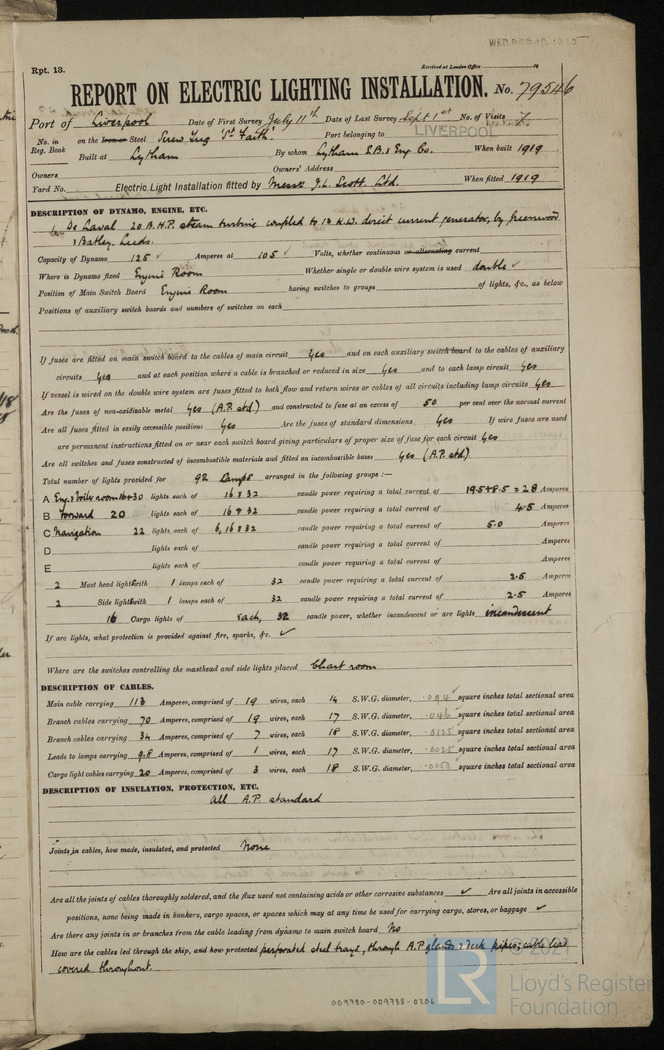 WED. DEC. 10. 1919
Rpt. 13.
Received at London Office 19
REPORT ON ELECTRIC LIGHTING INSTALLATION. No. 79546
Port of Liverpool Date of First Survey July 11th Date of Last Survey Sept 1st No. of Visits 7
No. in Reg. Book on the Iron or Steel Screw Tug 'St Faith'. Port belonging to LIVERPOOL
Built at Lytham By whom Lytham S.B. & Eng. Co. When built 1919
Owners Owners' Address
Yard No. Electric Light Installation fitted by Messrs J.L. Scott. Ltd. When fitted 1919
DESCRIPTION OF DYNAMO, ENGINE, ETC.
De Laval 20 B.H.P. steam turbine coupled to 13 K.W. direct current generator, by Greenwood
& Batley, Leeds.
Capacity of Dynamo 125 ✓ Amperes at 105 ✓ Volts, whether continuous or alternating current
Where is Dynamo fixed Engine Room Whether single or double wire system is used double ✓
Position of Main Switch Board Engine Room having switches to groups of lights, &c., as below
Positions of auxiliary switch boards and numbers of switches on each
If fuses are fitted on main switch board to the cables of main circuit Yes and on each auxiliary switch board to the cables of auxiliary
circuits Yes and at each position where a cable is branched or reduced in size Yes and to each lamp circuit Yes
If vessel is wired on the double wire system are fuses fitted to both flow and return wires or cables of all circuits including lamp circuits Yes
Are the fuses of non-oxidizable metal Yes (A.P. std) and constructed to fuse at an excess of 50 per cent over the normal current
Are all fuses fitted in easily accessible positions Yes Are the fuses of standard dimensions Yes If wire fuses are used
are permanent instructions fitted on or near each switch board giving particulars of proper size of fuse for each circuit Yes
Are all switches and fuses constructed of incombustible materials and fitted on incombustible bases Yes (A.P. std)
Total number of lights provided for 92 Lamps arranged in the following groups :—
A Eng. & Boiler room 16+30 lights each of 16 & 32 candle power requiring a total current of 19.5+8.5 = 28 Amperes
B Forward 20 lights each of 16 & 32 candle power requiring a total current of 4.5 Amperes
C Navigation 22 lights each of 6, 16 & 32 candle power requiring a total current of 5.0 Amperes
D lights each of candle power requiring a total current of Amperes
E lights each of candle power requiring a total current of Amperes
2 Mast head lights with 1 lamps each of 32 candle power requiring a total current of 2.5 Amperes
2 Side lights with 1 lamps each of 32 candle power requiring a total current of 2.5 Amperes
16 Cargo lights of each, 32 candle power, whether incandescent or arc lights incandescent
If arc lights, what protection is provided against fire, sparks, &c. ✓
Where are the switches controlling the masthead and side lights placed Chart room
DESCRIPTION OF CABLES.
Main cable carrying 113 Amperes, comprised of 19 wires, each 14 S.W.G. diameter, .094 square inches total sectional area
Branch cables carrying 70 Amperes, comprised of 19 wires, each 17 S.W.G. diameter, .046 square inches total sectional area
Branch cables carrying 34 Amperes, comprised of 7 wires, each 18 S.W.G. diameter, .0125 square inches total sectional area
Leads to lamps carrying 9.8 Amperes, comprised of 1 wires, each 17 S.W.G. diameter, .0025 square inches total sectional area
Cargo light cables carrying 20 Amperes, comprised of 3 wires, each 18 S.W.G. diameter, .0053 square inches total sectional area
DESCRIPTION OF INSULATION, PROTECTION, ETC.
All A.P. standard
Joints in cables, how made, insulated, and protected None
Are all the joints of cables thoroughly soldered, and the flux used not containing acids or other corrosive substances ✓ Are all joints in accessible
positions, none being made in bunkers, cargo spaces, or spaces which may at any time be used for carrying cargo, stores, or baggage ✓
Are there any joints in or branches from the cable leading from dynamo to main switch board No
How are the cables led through the ship, and how protected perforated steel trays, through A.P. glands & deck pipes; cable lead
covered throughout.
© 2021
LR
Lloyd's Register
Foundation
009780-009788-0206